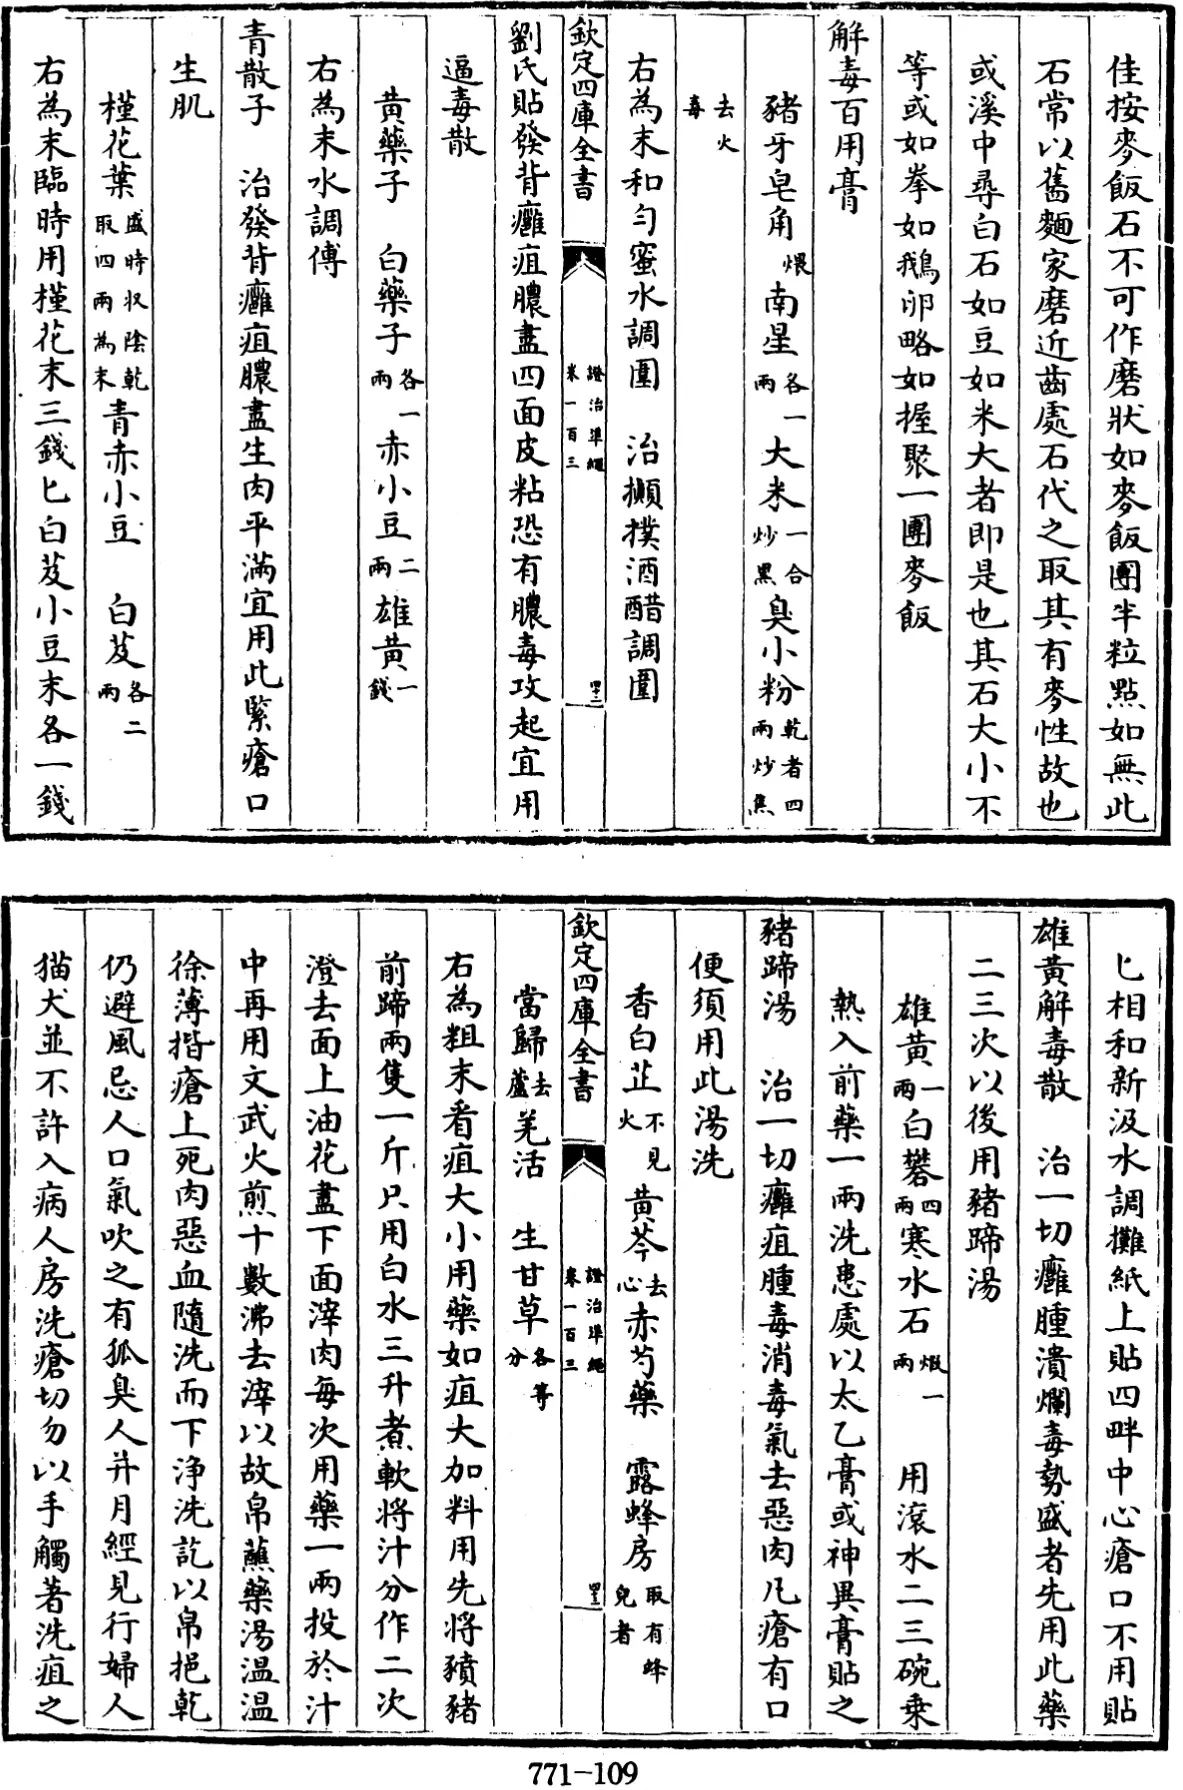 佳按麥飯石不可作磨狀如麥飯團半粒點如無此
石常以舊麵家磨近齒處石代之取其有麥性故也
或溪中尋白石如豆如米大者即是也其石大小不
等或如拳如鵝卵略如握聚一團麥飯
解毒百用膏
豬牙皂角煨南星各一兩大米一合炒黑臭小粉乾者四兩炒焦
去火毒
右為末和勻蜜水調圍 治攧撲酒醋調圍
欽定四庫全書 證治準繩 卷一百三 四十二
劉氏貼發背癰疽膿盡四面皮粘恐有膿毒攻起宜用
逼毒散
黃藥子 白藥子各一兩赤小豆二兩雄黃一錢
右為末水調傅
青散子 治發背癰疽膿盡生肉平滿宜用此緊瘡口
生肌
槿花葉盛時収陰乾取四兩為末青赤小豆 白芨各二兩
右為末臨時用槿花末三錢匕白芨小豆末各一錢
匕相和新汲水調攤紙上貼四畔中心瘡口不用貼
雄黃解毒散 治一切癰腫潰爛毒勢盛者先用此藥
二三次以後用豬蹄湯
雄黃一兩白礬四兩寒水石煅一兩 用滾水二三碗乗
熱入前藥一兩洗患處以太乙膏或神異膏貼之
豬蹄湯 治一切癰疽腫毒消毒氣去惡肉凡瘡有口
便須用此湯洗
香白芷不見火黃芩去心赤芍藥 露蜂房取有蜂兒者
欽定四庫全書 證治準繩 卷一百三 四十三
當歸去蘆羌活 生甘草各等分
右為粗末看疽大小用藥如疽大加料用先將豶豬
前蹄兩隻一斤只用白水三升煮軟將汁分作二次
澄去面上油花盡下面滓肉每次用藥一兩投於汁
中再用文武火煎十數沸去滓以故帛蘸藥湯温温
徐薄揩瘡上死肉惡血隨洗而下淨洗訖以帛挹乾
仍避風忌人口氣吹之有狐臭人并月經見行婦人
猫犬並不許入病人房洗瘡切勿以手觸著洗疽之
771-109